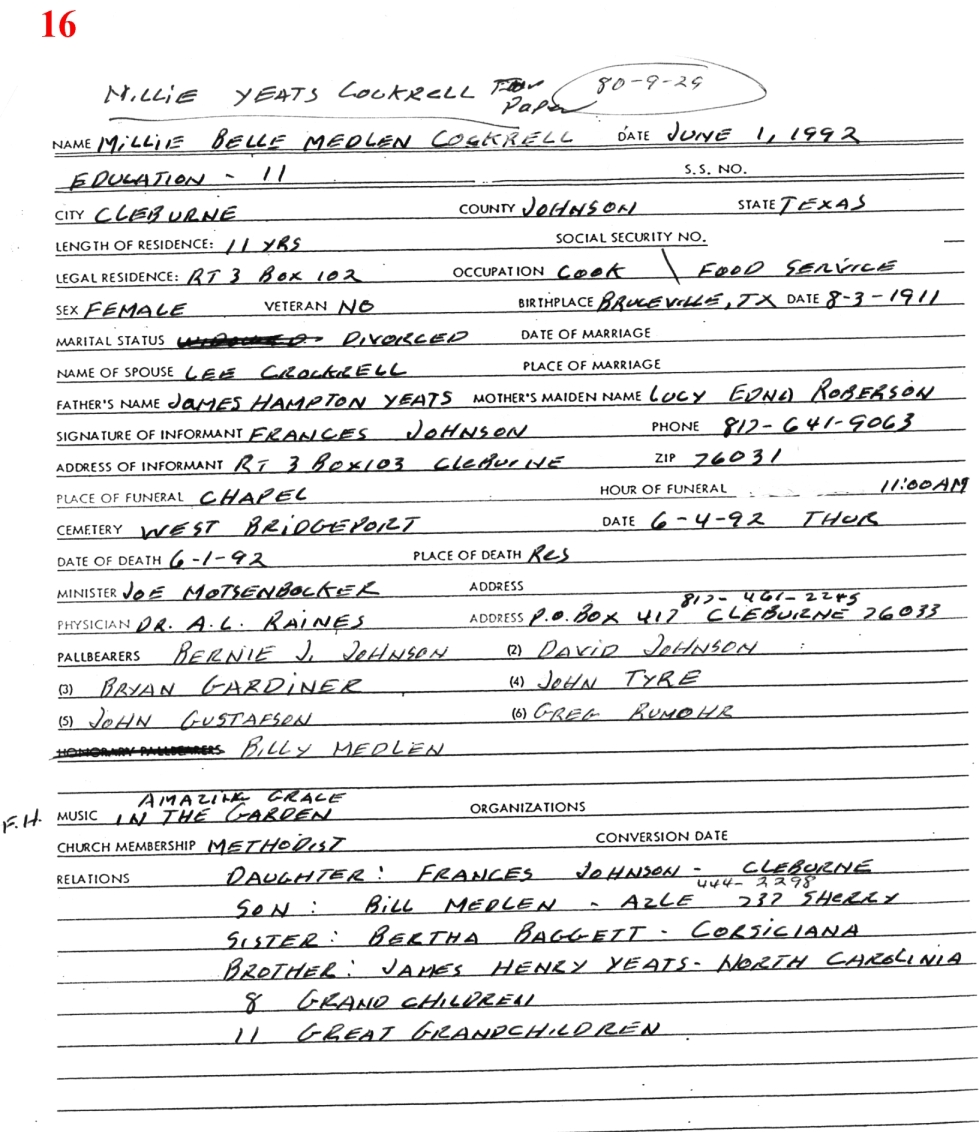 16
MILLIE YEATS COCKRELL For Paper 80-9-29
NAME MILLIE BELLE MEDLEN COCKRELL DATE JUNE 1, 1992
EDUCATION - 11 S.S. NO.
CITY CLEBURNE COUNTY JOHNSON STATE TEXAS
LENGTH OF RESIDENCE: 11 YRS SOCIAL SECURITY NO.
LEGAL RESIDENCE: RT 3 BOX 102 OCCUPATION COOK \ FOOD SERVICE
SEX FEMALE VETERAN NO BIRTHPLACE BRUCEVILLE, TX DATE 8-3-1911
MARITAL STATUS WIDOWED DIVORCED DATE OF MARRIAGE
NAME OF SPOUSE LEE CROCKRELL PLACE OF MARRIAGE
FATHER'S NAME JAMES HAMPTON YEATS MOTHER'S MAIDEN NAME LUCY EDNA ROBERSON
SIGNATURE OF INFORMANT FRANCES JOHNSON PHONE 817-641-9063
ADDRESS OF INFORMANT RT 3 BOX 103 CLEBURNE ZIP 76031
PLACE OF FUNERAL CHAPEL HOUR OF FUNERAL 11:00 AM
CEMETERY WEST BRIDGEPORT DATE 6-4-92 THUR
DATE OF DEATH 6-1-92 PLACE OF DEATH RES
MINISTER JOE MOTSENBOCKER ADDRESS
817-461-2245
PHYSICIAN DR. A.L. RAINES ADDRESS P.O. BOX 417 CLEBURNE 76033
PALLBEARERS BERNIE J. JOHNSON (2) DAVID JOHNSON
(3) BRYAN GARDINER (4) JOHN TYRE
(5) JOHN GUSTAFSON (6) GREG RUMOHR
HONORARY PALLBEARERS BILLY MEDLEN
AMAZING GRACE
F.H. MUSIC IN THE GARDEN ORGANIZATIONS
CHURCH MEMBERSHIP METHODIST CONVERSION DATE
RELATIONS DAUGHTER: FRANCES JOHNSON - CLEBURNE
444-2298
SON: BILL MEDLEN - AZLE 737 SHERRY
SISTER: BERTHA BAGGETT - CORSICIANA
BROTHER: JAMES HENRY YEATS - NORTH CAROLINIA
8 GRAND CHILDREN
11 GREAT GRANDCHILDREN